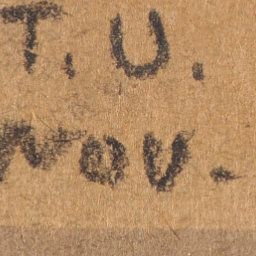 T. U.
Nov.